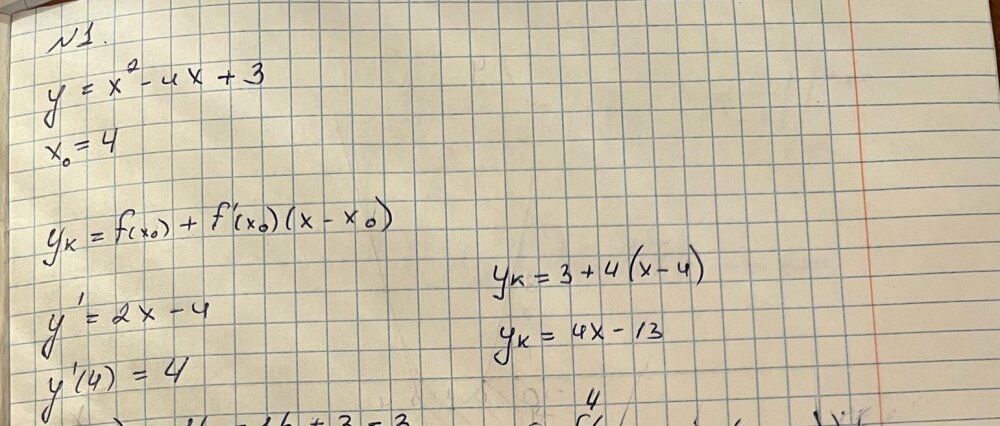 №1.
y = x² - 4x + 3
x₀ = 4
yₖ = f(x₀) + f'(x₀)(x - x₀)
y' = 2x - 4
y'(4) = 4
16 + 3 = 3
yₖ = 3 + 4(x - 4)
yₖ = 4x - 13
4